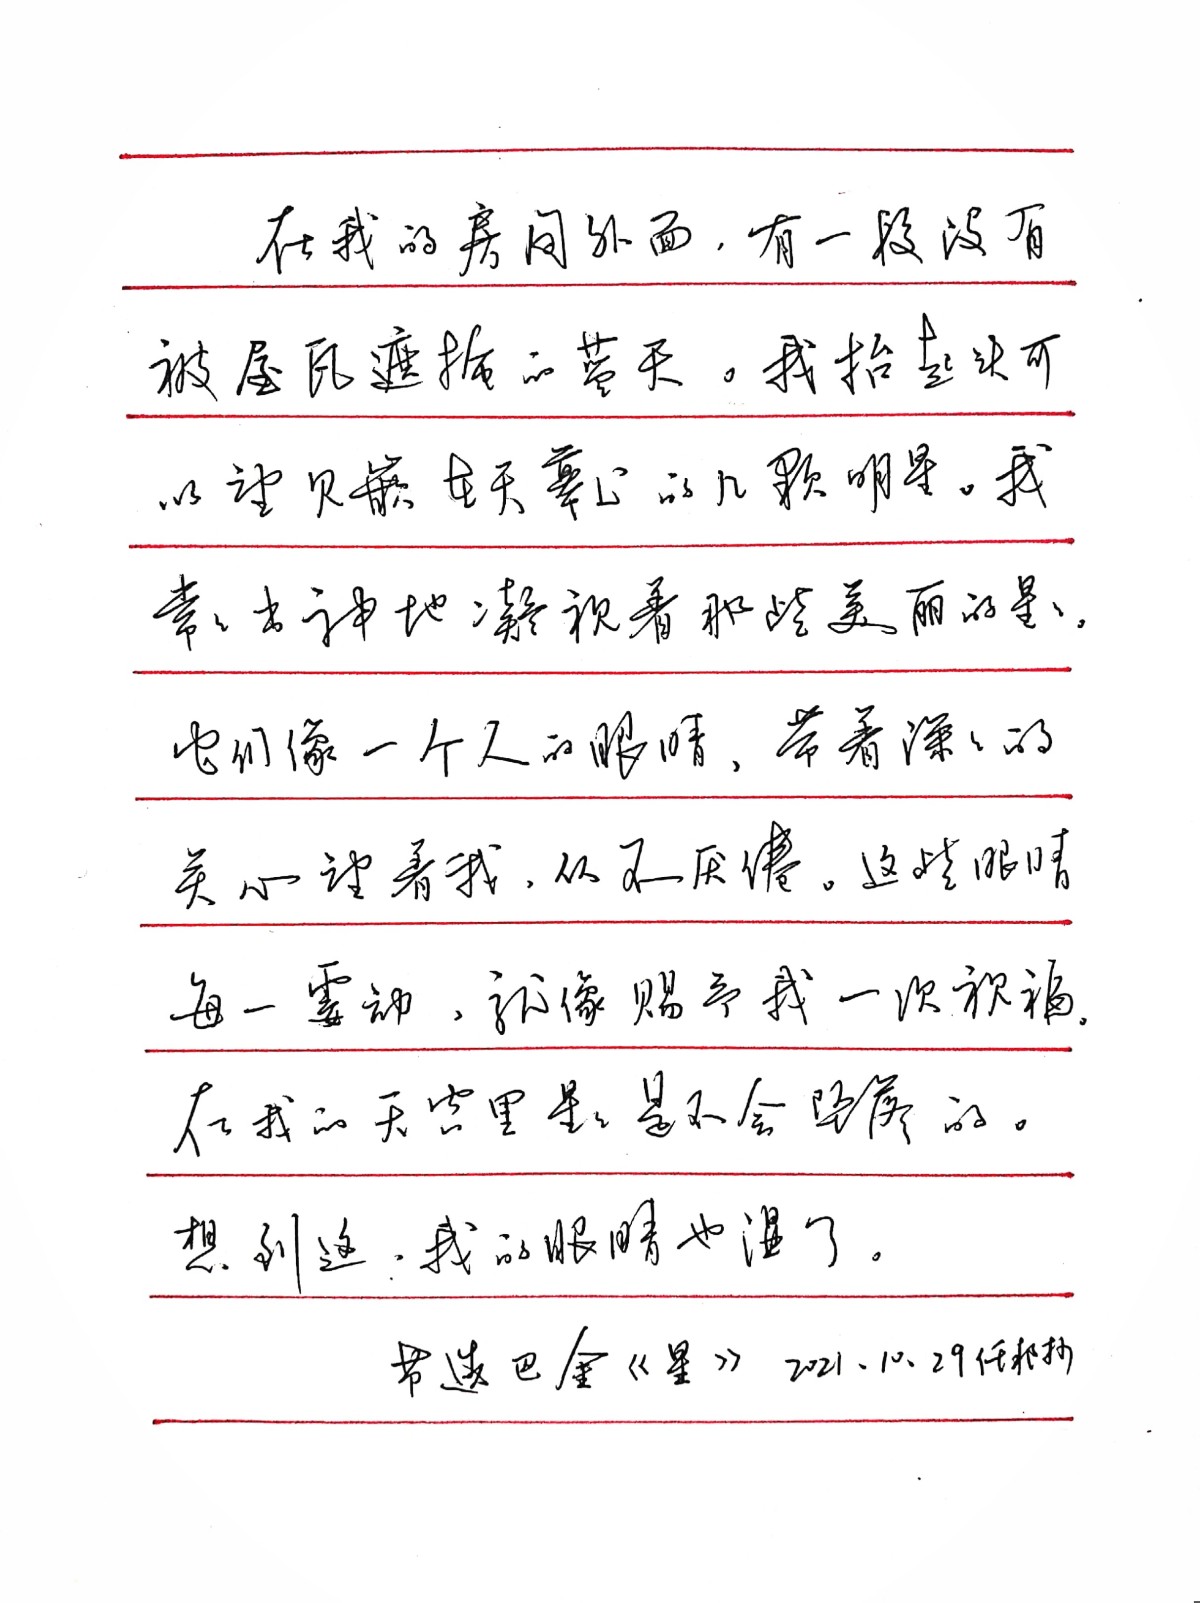 在我的房间外面，有一段没有
被屋瓦遮掩的蓝天。我抬起头可
以望见嵌在天幕上的几颗明星。我
常々出神地凝视着那些美丽的星々。
它们像一个人的眼睛，带着深々的
关心望着我，从不厌倦。这些眼睛
每一霎动，就像赐予我一次祝福。
在我的天空里星々是不会坠落的。
想到这，我的眼睛也湿了。
节选巴金《星》 2021.10.29任 抄